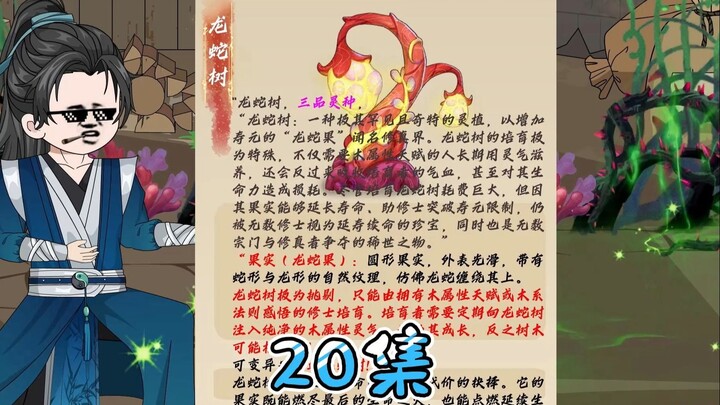 龙蛇树
"龙蛇树，三品灵种
"龙蛇树：一种极其罕见且奇特的灵植，以增加
寿元的"龙蛇果"闻名修真界。龙蛇树的培育极
为特殊，不仅需要木属性天赋的人长期用灵气滋
养，还会反过来吸收培育者的气血，甚至对其生
命力造成损耗。尽管培育龙蛇树耗费巨大，但因
其果实能够延长寿命、助修士突破寿元限制，仍
被无数修士视为延寿续命的珍宝，同时也是无数
宗门与修真者争夺的稀世之物。"
"果实（龙蛇果）：圆形果实，外表光滑，带有
蛇形与龙形的自然纹理，仿佛龙蛇缠绕其上。
龙蛇树极为挑剔，只能由拥有木属性天赋或木系
法则感悟的修士培育。培育者需要定期向龙蛇树
注入纯净的木属性灵气 其成长，反之树木
可能
可变异
20集
龙蛇树 命 价的抉择。它的
果实既能燃尽最后的生命 也能点燃延续生